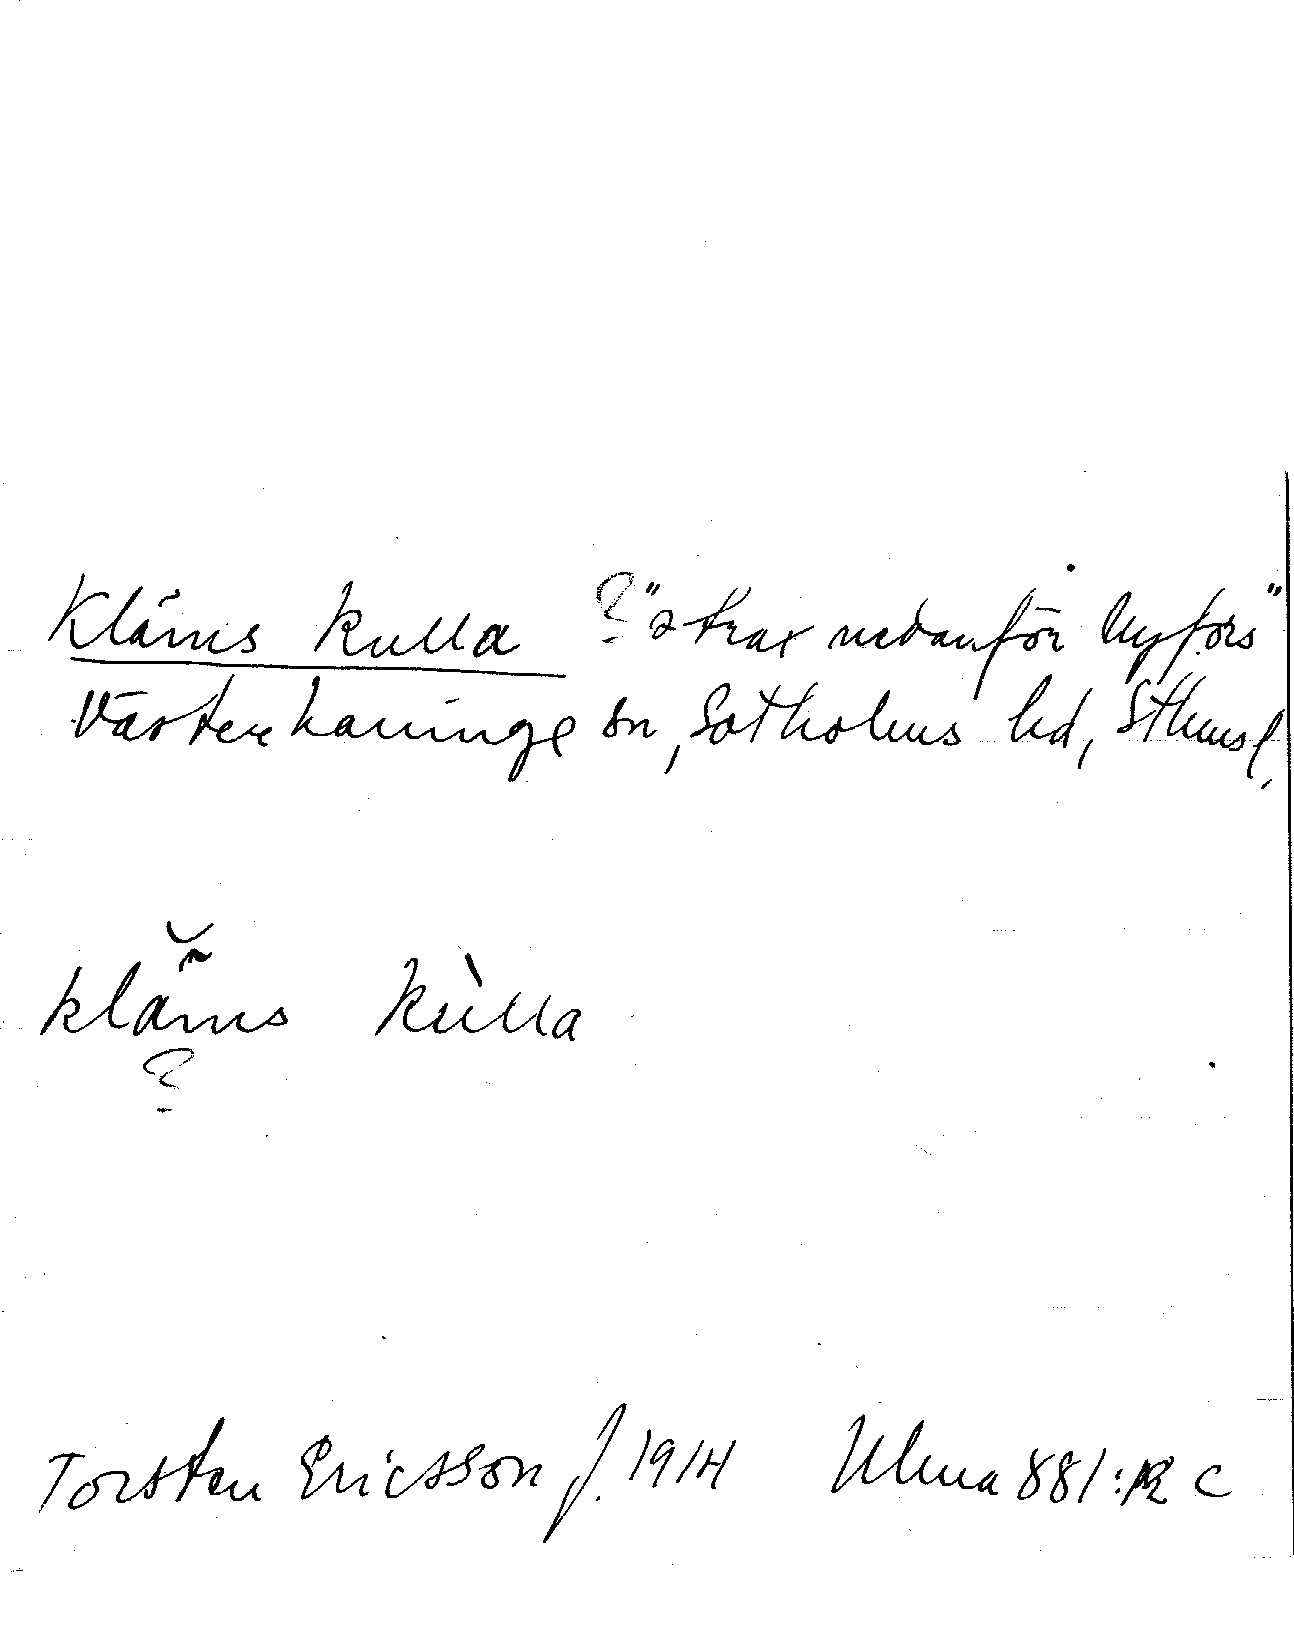 Kläms kulla ? "strax nedanför Nyfors"
Västerhaninge sn, Sotholms hd, Sthmsl.
kläms kùlla
?
Torsten Ericsson f. 1914 Ulma 881:12 C